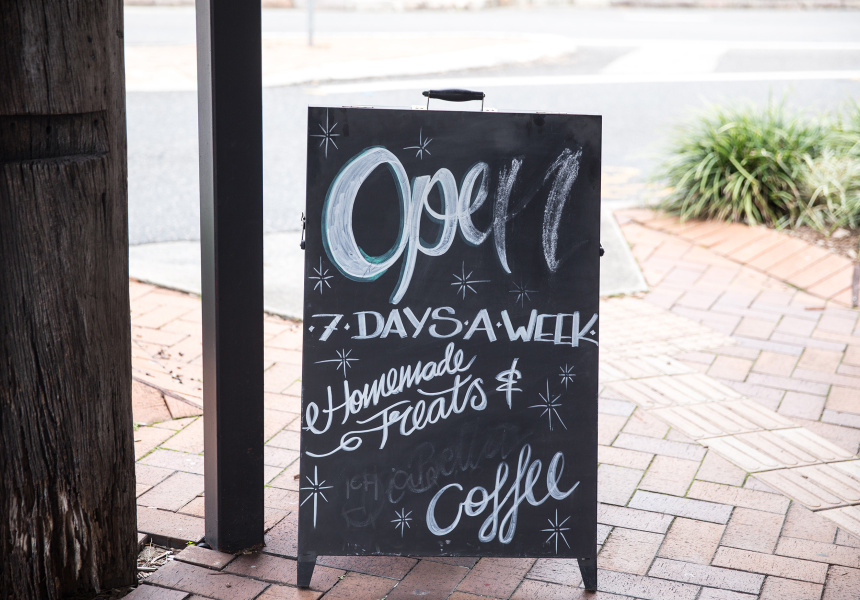 Open
7·DAYS·A·WEEK
Homemade
Treats &
Coffee